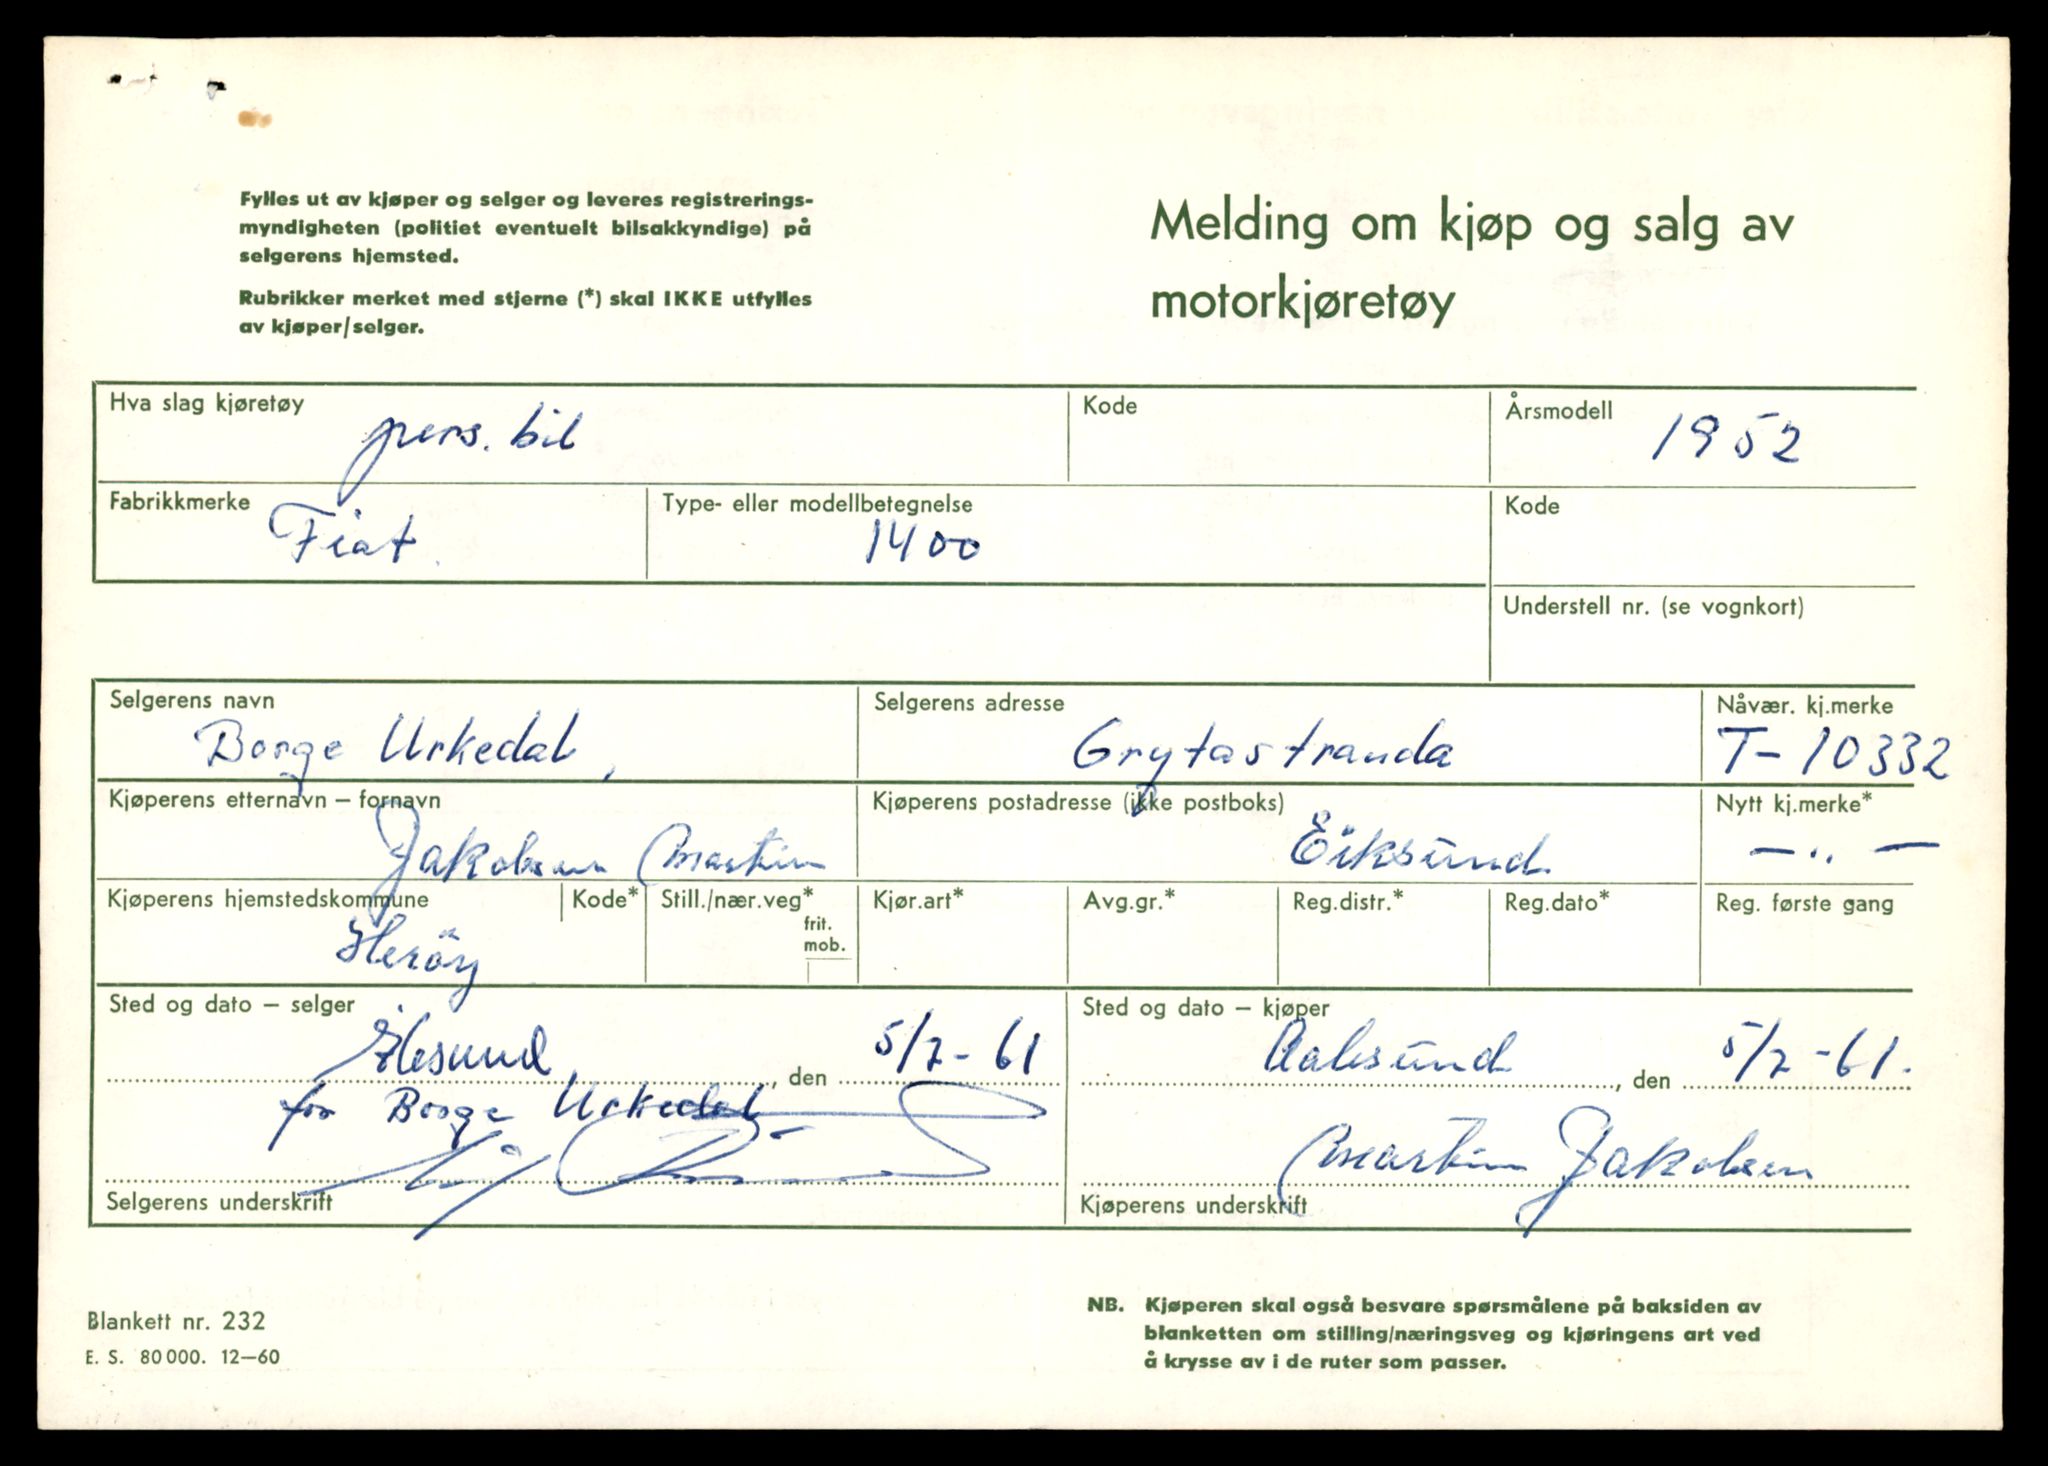 Fylles ut av kjøper og selger og leveres registrerings-
myndigheten (politiet eventuelt bilsakkyndige) på
selgerens hjemsted.
Rubrikker merket med stjerne (*) skal IKKE utfylles
av kjøper/selger.
Melding om kjøp og salg av
motorkjøretøy
Hva slag kjøretøy
pers. bil
Kode
Årsmodell
1952
Fabrikkmerke
Fiat
Type- eller modellbetegnelse
1400
Kode
Understell nr. (se vognkort)
Selgerens navn
Borge Urkedal,
Selgerens adresse
Grytastranda
Nåvær. kj.merke
T-10332
Kjøperens etternavn – fornavn
Jakobsen Martin
Kjøperens postadresse (ikke postboks)
Eiksund
Nytt kj.merke*
— „ —
Kjøperens hjemstedskommune
Herøy
Kode*
Still./nær.veg*
frit.
mob.
Kjør.art*
Avg.gr.*
Reg.distr.*
Reg.dato*
Reg. første gang
Sted og dato – selger
Ålesund, den 5/7-61
for Borge Urkedal
Selgerens underskrift
Sted og dato – kjøper
Aalesund, den 5/7-61.
Martin Jakobsen
Kjøperens underskrift
Blankett nr. 232
E. S. 80 000. 12—60
NB. Kjøperen skal også besvare spørsmålene på baksiden av
blanketten om stilling/næringsveg og kjøringens art ved
å krysse av i de ruter som passer.